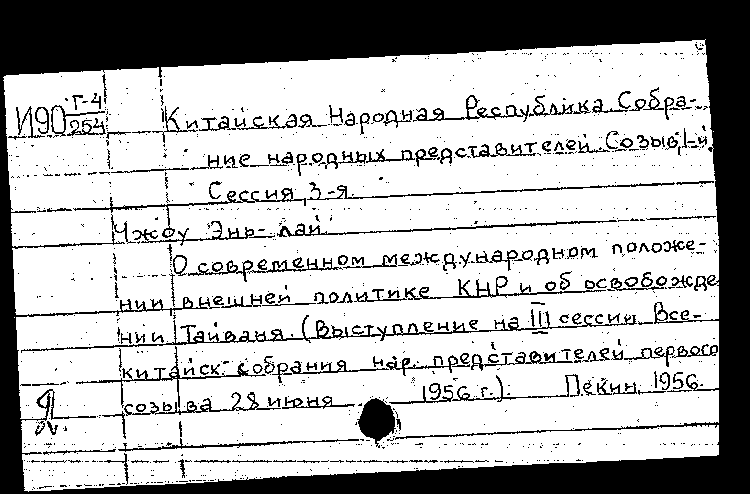 И90 Г-4/254
Китайская Народная Республика. Собра-
ние народных представителей. Созыв, I-й.
Сессия, 3-я.
Чжоу Энь-лай.
О современном международном положе-
нии, внешней политике КНР и об освобожде
нии Тайваня. (Выступление на III сессии Все-
китайск. собрания нар. представителей первого
созыва 28 июня 1956 г.). Пекин, 1956.
Д.